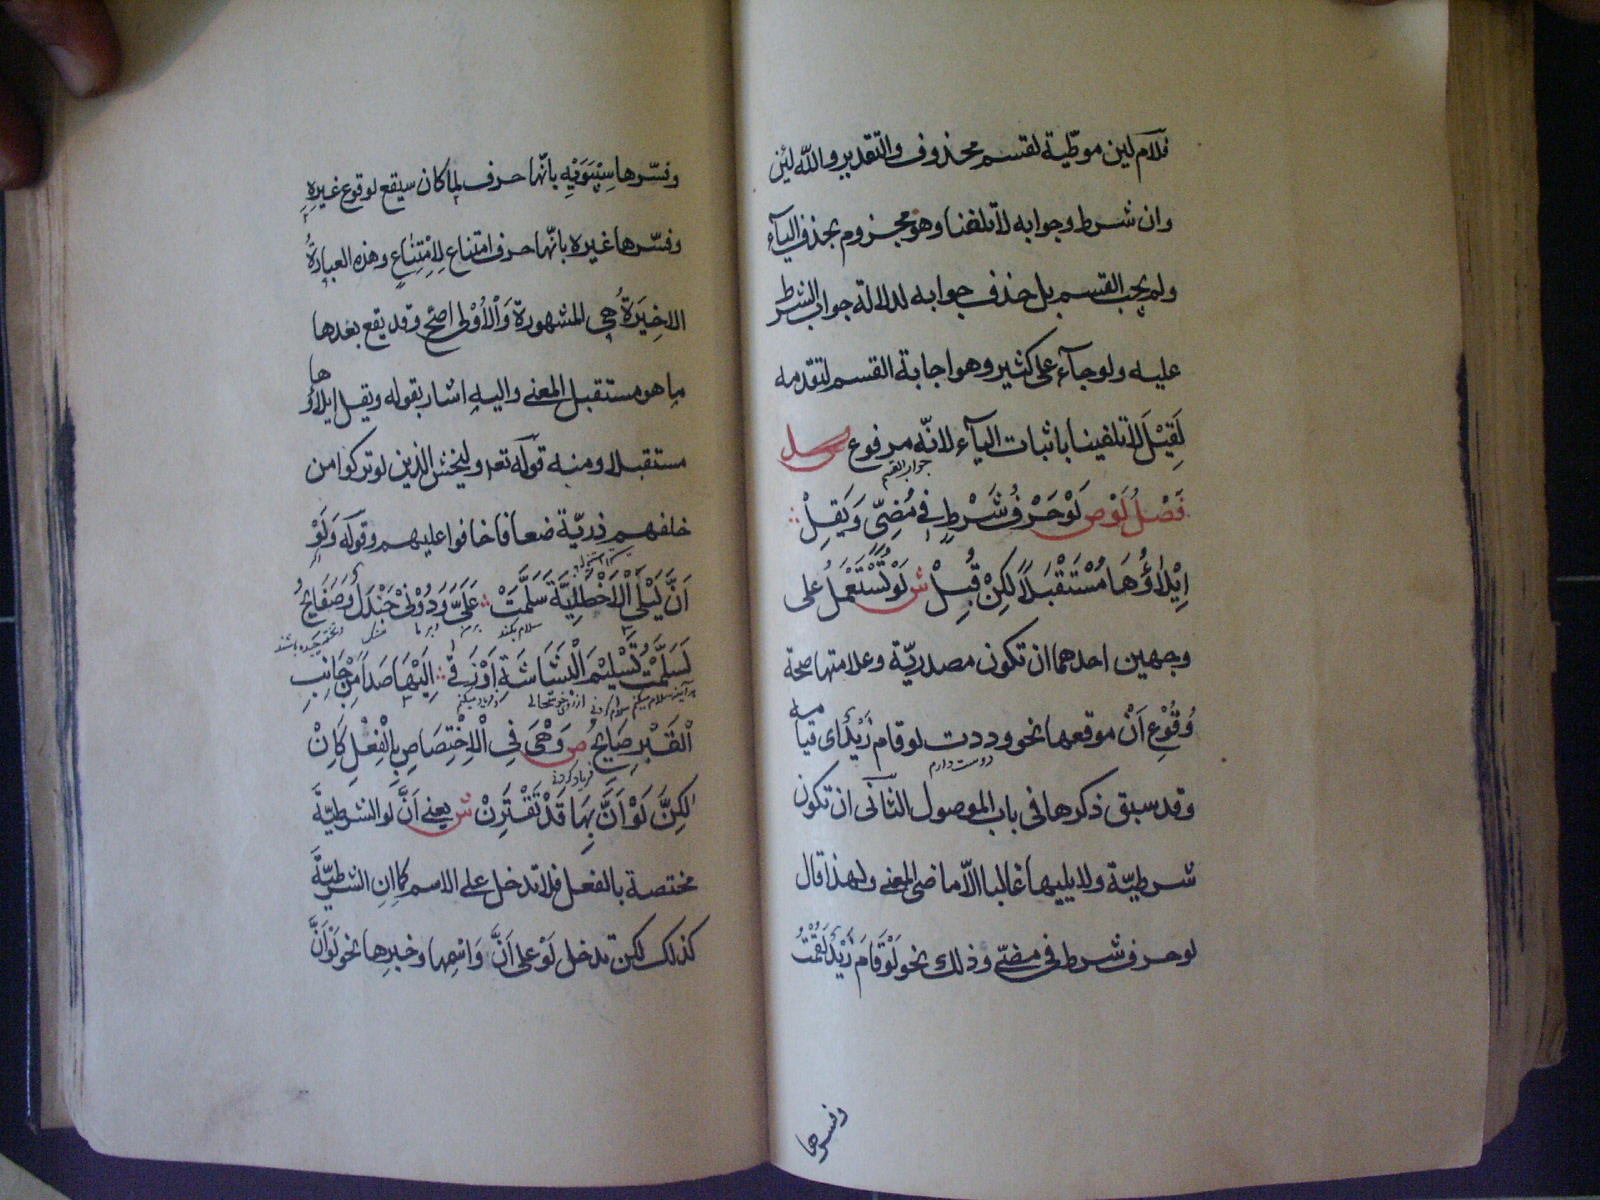 فلام لين موطّية لقسم محذوف والتقدير والله لئن
وان شرط وجوابه لا تلفنا وهو مجزوم بحذف اليآء
ولم يجب القسم بل حذف جوابه لدلالة جواب الشرط
عليه ولو جآء على كثير وهو اجابة القسم لتقدّمه
لَقِيْلَ لا تلفينا باثبات اليآء لانّه مرفوع
جواب القسم
فَصْلُ لَوْ ص لَوْحَرْفُ شَرْطٍ فِي مُضِيٍّ وَيَقِلْ
اِيْلَاؤُهَا مُسْتَقْبَلاً لكِنْ قُبِلْ ش لَوْ تُسْتَعْمَلُ على
وجهين احدهما ان تكون مصدريّة وعلامتها صحة
وُقُوْعِ اَنْ موقعها نحو وددت لو قام زَيْدٌ اى قيامه
دوست دارم
وقد سبق ذكرها فى باب الموصول الثانى ان تكون
شرطيّة ولا يليها غالبا الّا ماضى المعنى ولهذا قال
لو حرف شرط فى مضىّ وذلك نحو لَوْ قَامَ زَيْدٌ لَقُمْتُ
وفسرها
وفسّرها سِيْبَوَيْهِ بانّها حرف لما كان سيقع لوقوع غيرِهِ
وفسّرها غيره بانّها حرف امتناع لِاِمْتِنَاعٍ وهذه العبارةُ
الاخِيَرَةُ هي المشهورة وَالْاُوْلى اصحّ وقد يقع بعدها
ما هو مستقبل المعنى واليه اشار بقوله ويقل ايلاؤها
مستقبلا ومنه قوله تعہ وليخش الذين لو تركوا من
خلفهم ذريّة ضعافا خافوا عليهم وقوله وَلَوْ
اَنَّ لَيْلَى الْاَخْيَلِيَّةَ سَلَّمَتْ عَلَيَّ وَدُوْنِيْ جَنْدَلٌ وَصَفَايِحُ
سلام بكند
لَسَلَّمْتُ تَسْلِيْمَ الْبَشَاشَةِ اَوْ زَقٰى اِلَيْهَا صَدًا مِنْ جَانِبِ
الْقَبْرِ صَايِحُ ص وَهْيَ فِي الْاِخْتِصَاصِ بِالْفِعْلِ كَاِنْ
لكِنَّ لَوْ اَنَّ بِهَا قَدْ تَقْتَرِنْ ش يعنى اَنَّ لو الشرطيّةَ
مختصة بالفعل فلا تدخل على الاسم كما انِ الشرطيّةَ
كذلك لكن تدخل لَوْ على اَنَّ وَاسْمِها وخبرها نحو لَوْ اَنَّ